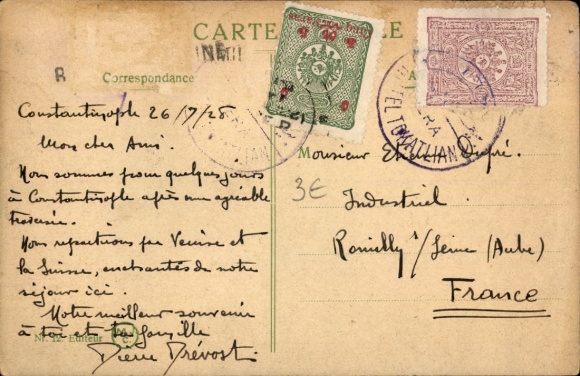 CARTE
Correspondance
R
Constantinople 26/7/28
Mon cher Ami.
Nous sommes pour quelques jours
à Constantinople après une agréable
traversée.
Nous repartirons par Venise et
la Suisse, enchantés de notre
séjour ici.
Notre meilleur souvenir
à toi et ta famille
Pierre Prévost
Nº 12. Editeur
PERA
TOKATLIAN
HOTEL TOKATLIAN
PERA
3€
Monsieur Dupré.
Industriel
Romilly s/Seine (Aube)
France